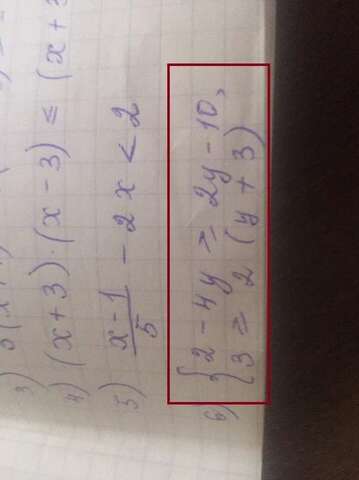 4) (x+3)·(x-3) ≤ (x+3
5) x-1/5 - 2x < 2
6) { 2-4y ≥ 2y-10,
3 ≥ 2(y+3)